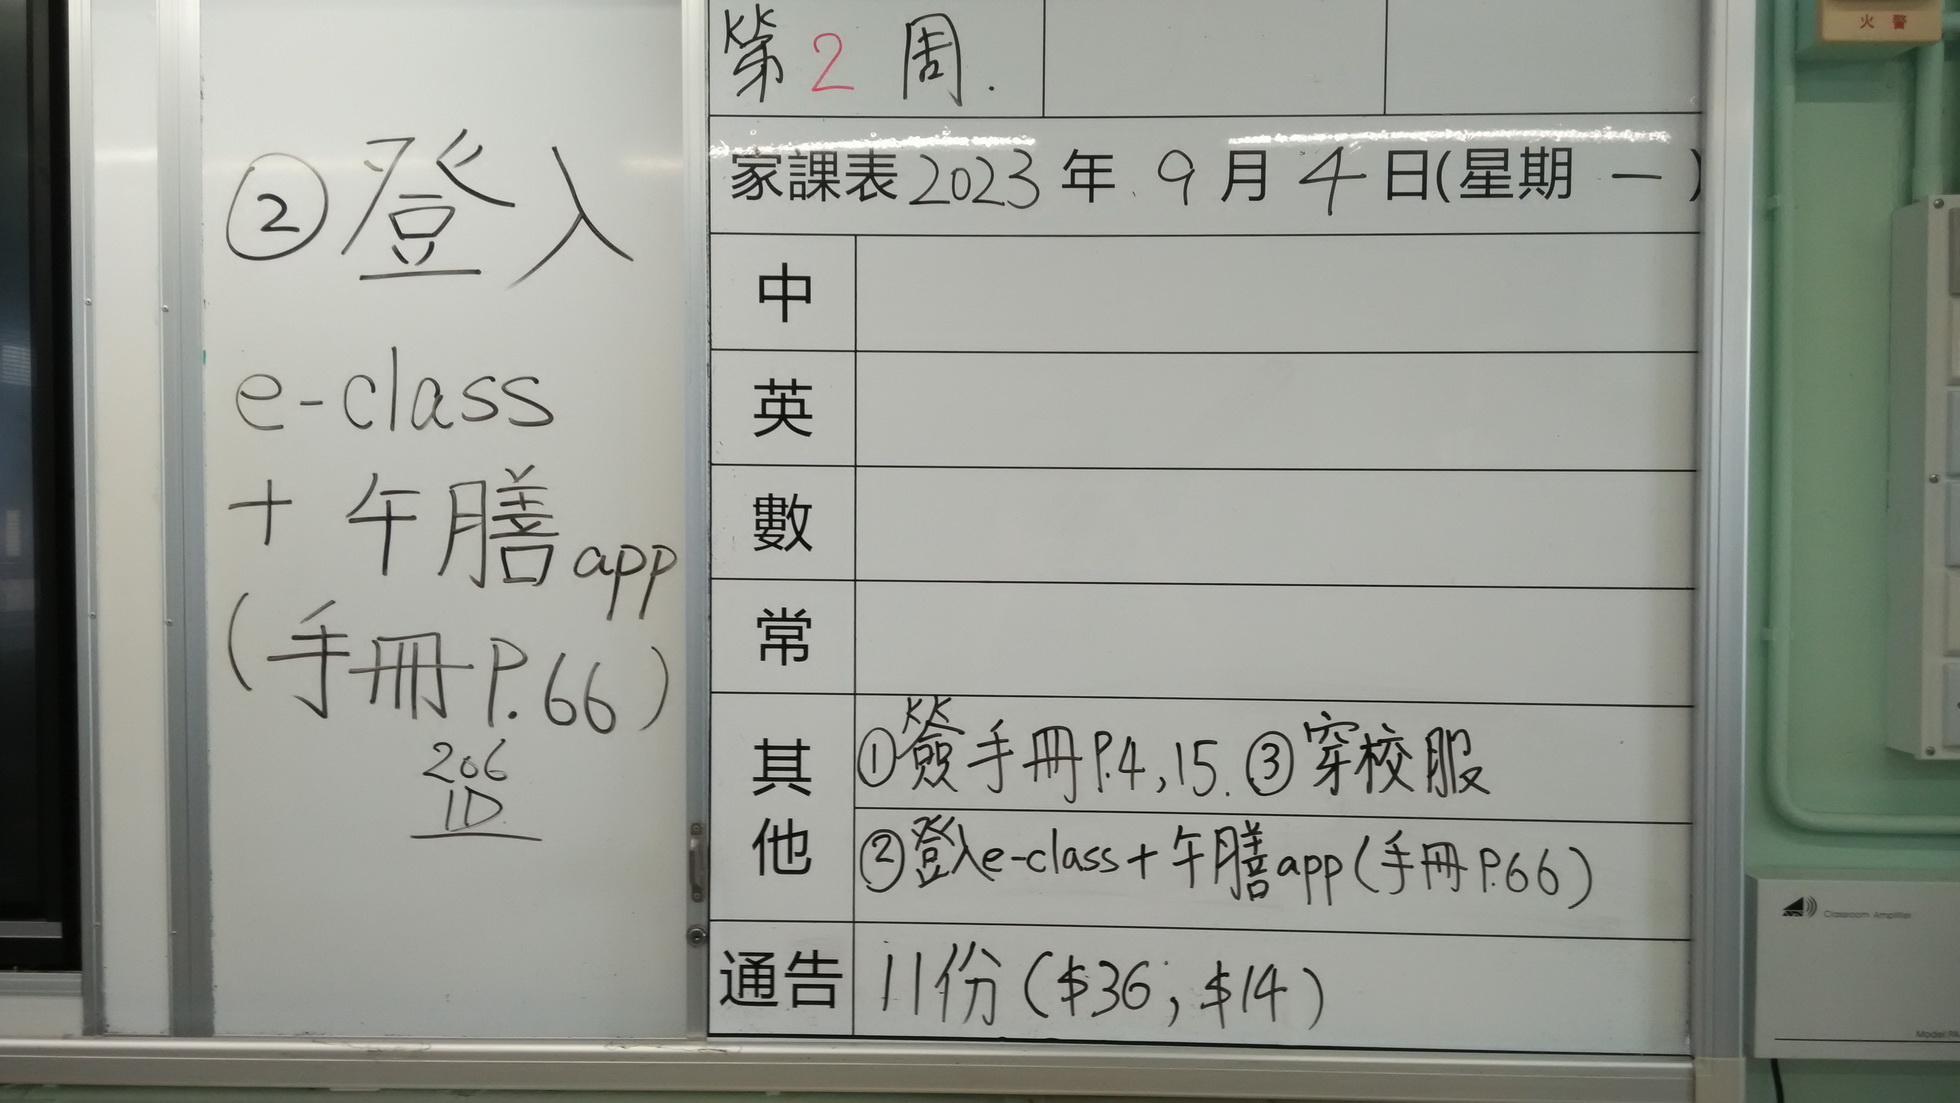 ②登入
e-class
+ 午膳app
(手冊P.66)
206
1D
第2周.
家課表2023年9月4日(星期一)
中
英
數
常
其他
①簽手冊P.4,15. ③穿校服
②登入e-class+午膳app(手冊P.66)
通告 11份($36;$14)
火警
Classroom Amplifier